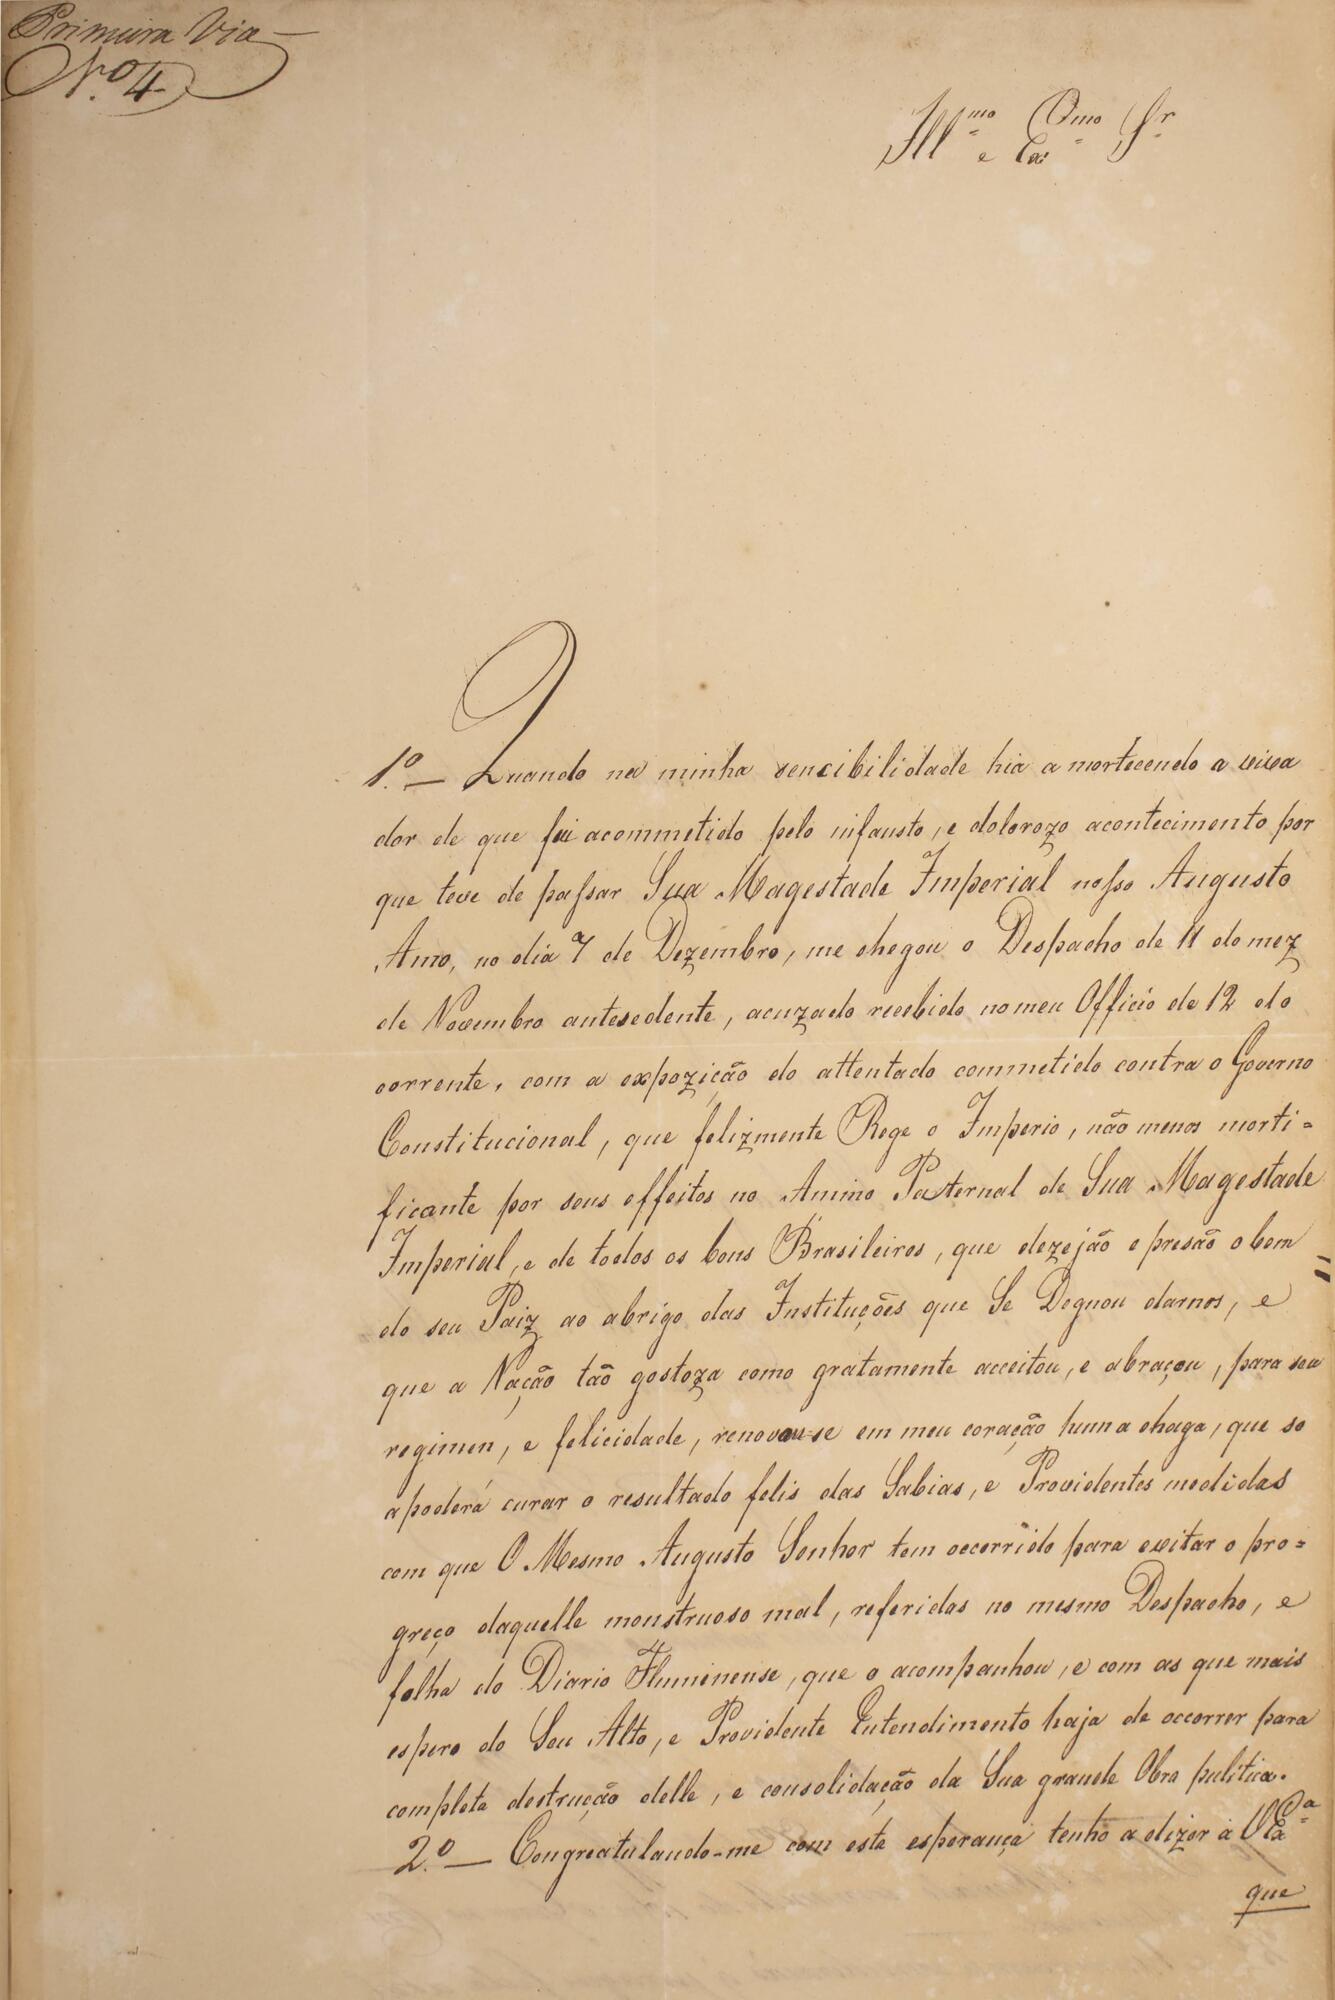 Primeira Via
N.º 4
Ill.mo e Ex.mo Sr.
1.º — Quando na minha sencibilidade hia a mortecendo a viva
dor de que fui acommetido pelo infausto, e dolorozo acontecimento por
que teve de passar Sua Magestade Imperial nosso Augusto
Amo, no dia 7 de Dezembro, me chegou o Despacho de 11 do mez
de Novembro antesedente, acuzado recebido no meu Officio de 12 do
corrente, com a expozição do attentado commetido contra o Governo
Constitucional, que felizmente Rege o Imperio, não menos morti=
ficante por seus effeitos no Animo Paternal de Sua Magestade
Imperial, e de todos os bons Brasileiros, que dezejão e presão o bem
do seu Paiz ao abrigo das Instituções que Se Degnou darnos, e
que a Nação tão gostoza como gratamente acceitou, e abraçou, para seu
regimen, e felicidade, renovou-se em meu coração huma chaga, que so
a poderá curar o resultado felis das Sabias, e Providentes medidas
com que O Mesmo Augusto Senhor tem occorrido para evitar o pro=
greço daquelle monstruoso mal, referidas no mesmo Despacho, e
folha do Diario Fluminense, que o acompanhou, e com as que mais
espero do Seu Alto, e Providente Entendimento haja de occorrer para
completa destruição delle, e consolidação da Sua grande Obra pulitica.
2.º — Congreatulando-me com esta esperança tenho a dizer a V Ex.a
que